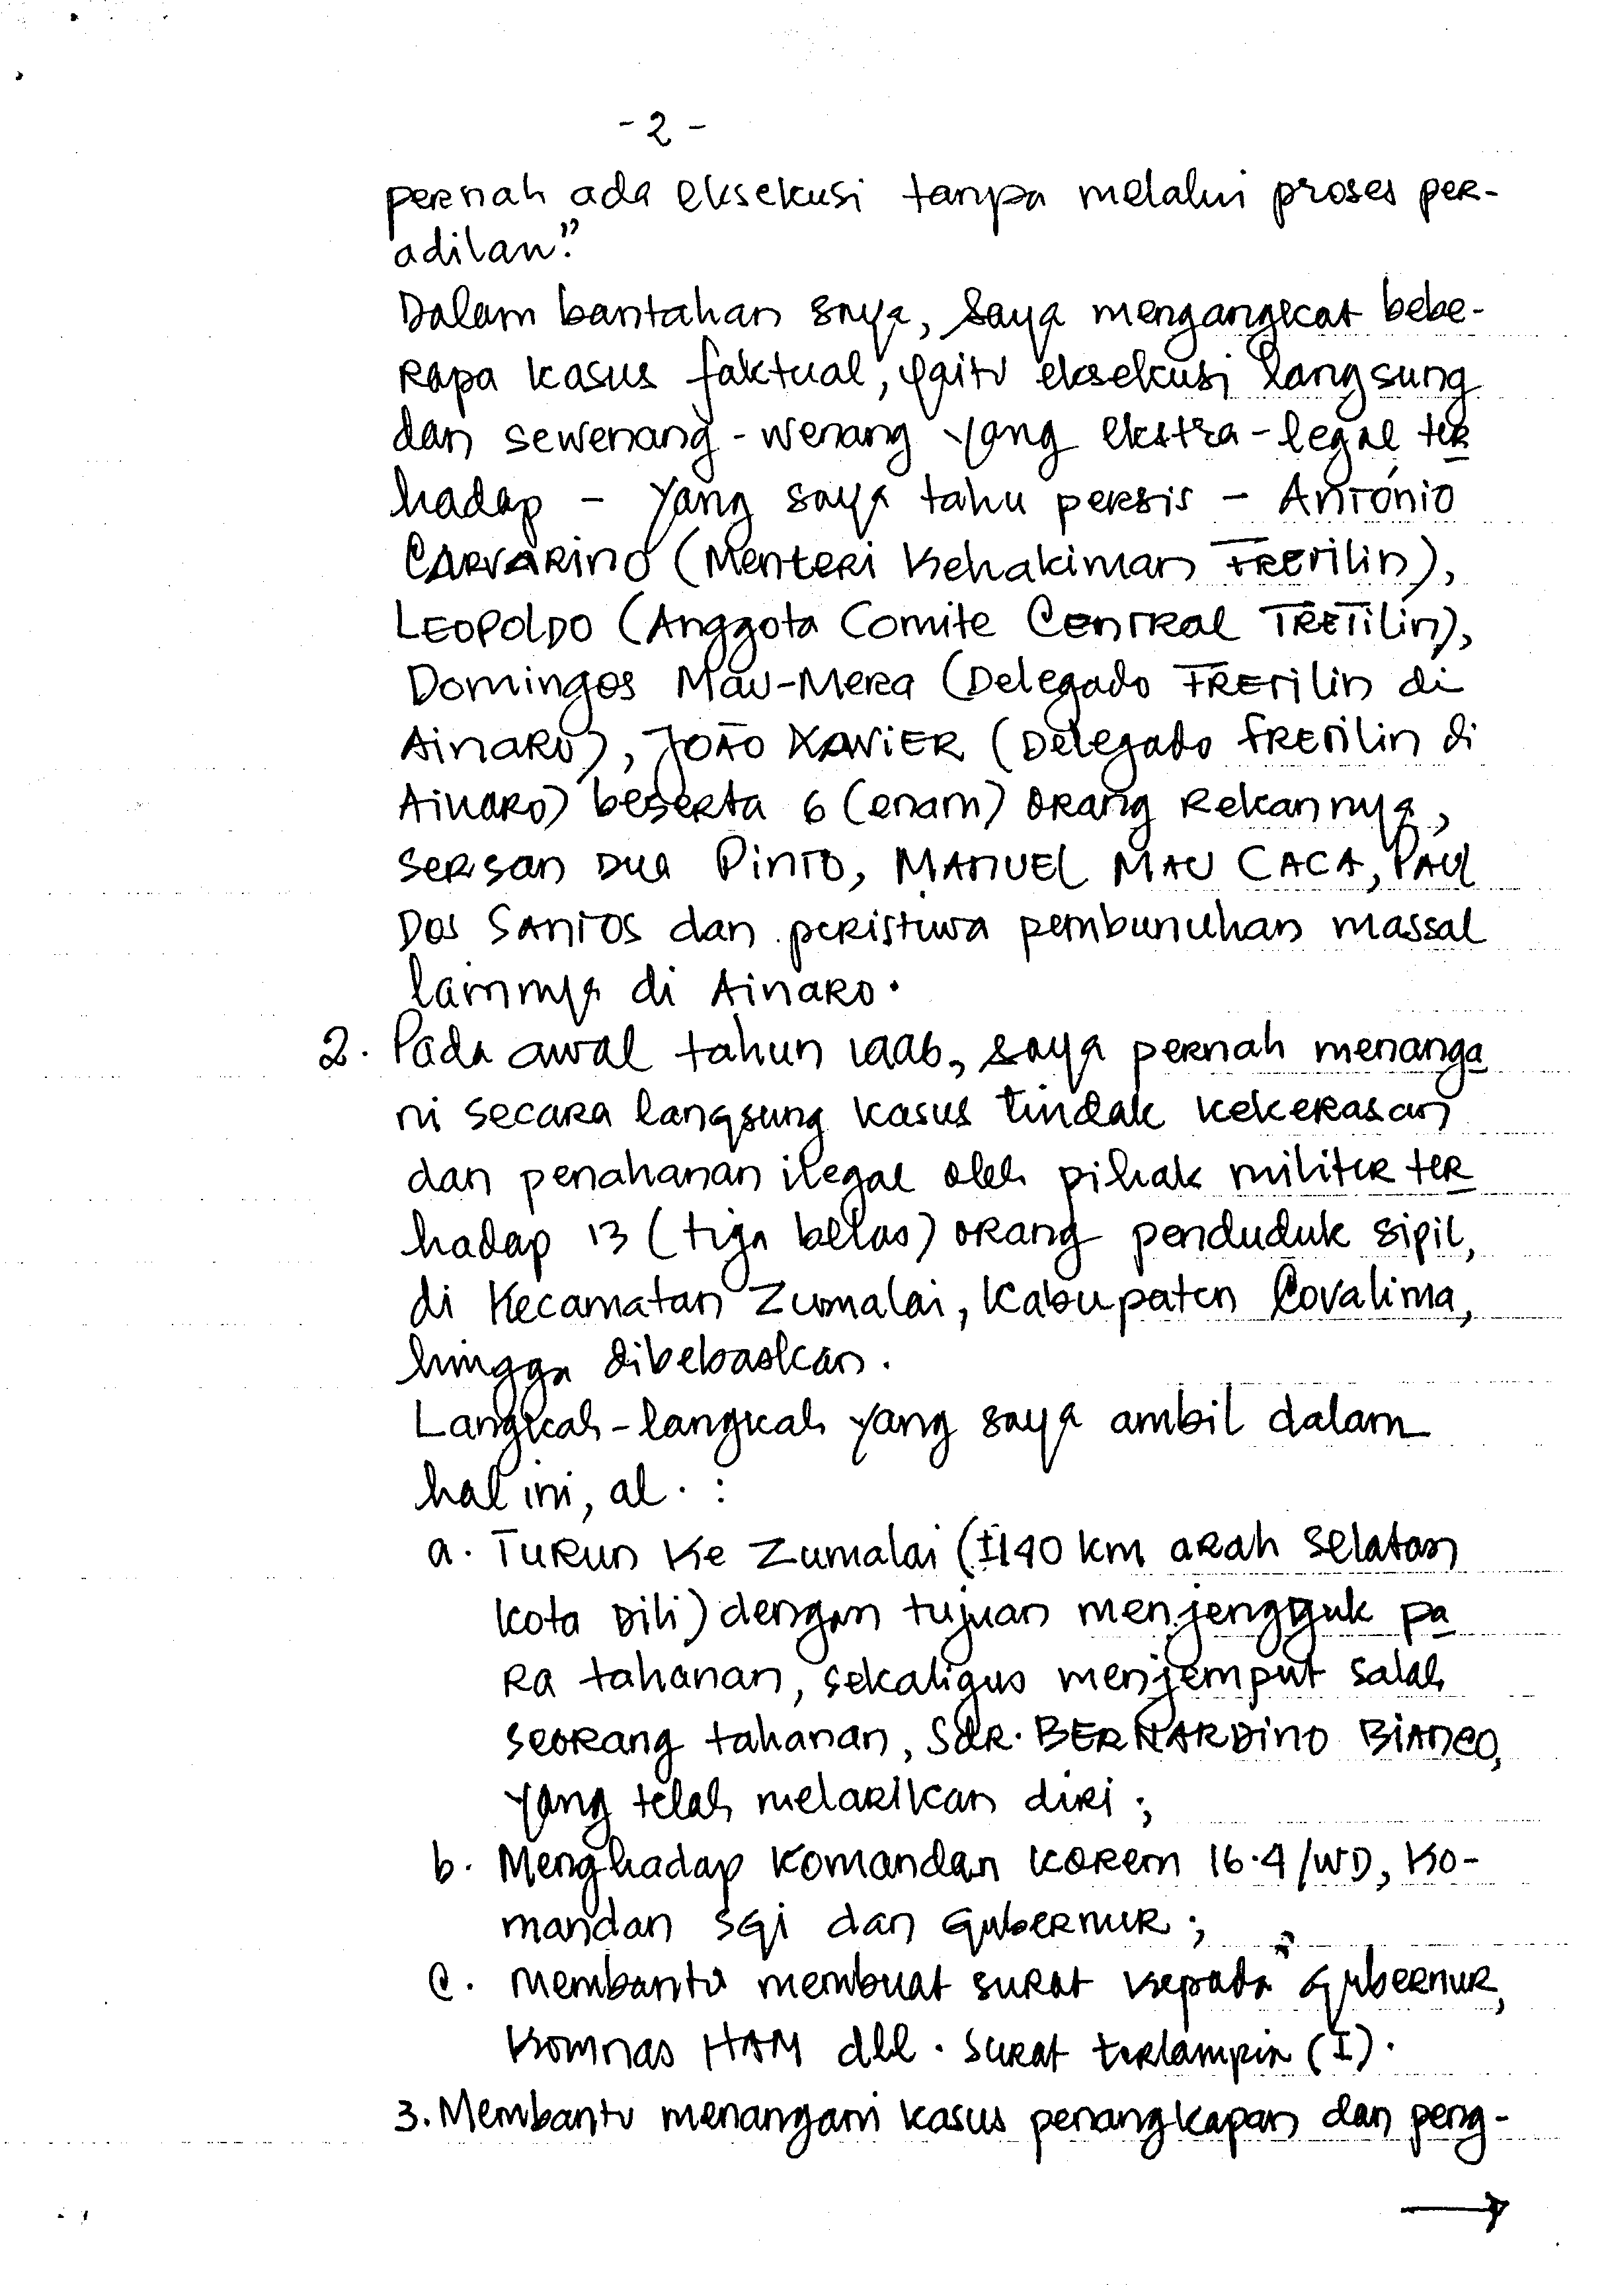 - 2 -
pernah ada eksekusi tanpa melalui proses per-
adilan."
Dalam bantahan saya, saya mengangkat bebe-
rapa kasus faktual, yaitu eksekusi langsung
dan sewenang-wenang yang ekstra-legal ter
hadap - yang saya tahu persis - António
CARVARINO (Menteri Kehakiman FRETILIN),
LEOPOLDO (Anggota Comite Central FRETILIN),
Domingos Mau-Mera (Delegado FRETILIN di
Ainaro), JOÃO XAVIER (Delegado FRETILIN di
Ainaro) beserta 6 (enam) orang rekannya,
sersan Dua PINTO, MANUEL MAU CACA, PAUL
DOS SANTOS dan peristiwa pembunuhan massal
lainnya di Ainaro.
2. Pada awal tahun 1996, saya pernah menanga
ni secara langsung kasus tindak kekerasan
dan penahanan ilegal oleh pihak militer ter
hadap 13 (tiga belas) orang penduduk sipil,
di Kecamatan Zumalai, Kabupaten Covalima,
hingga dibebaskan.
Langkah-langkah yang saya ambil dalam
hal ini, al. :
a. Turun ke Zumalai (±140 km arah selatan
kota Dili) dengan tujuan menjengguk pa
ra tahanan, sekaligus menjemput salah
seorang tahanan, Sdr. BERNARDINO BIANCO,
yang telah melarikan diri ;
b. Menghadap Komandan Korem 16.4/WD, Ko-
mandan SGI dan Gubernur ;
c. Membantu membuat surat kepada Gubernur,
Komnas HAM dll. Surat terlampir (I).
3. Membantu menangani kasus penangkapan dan peng-
→